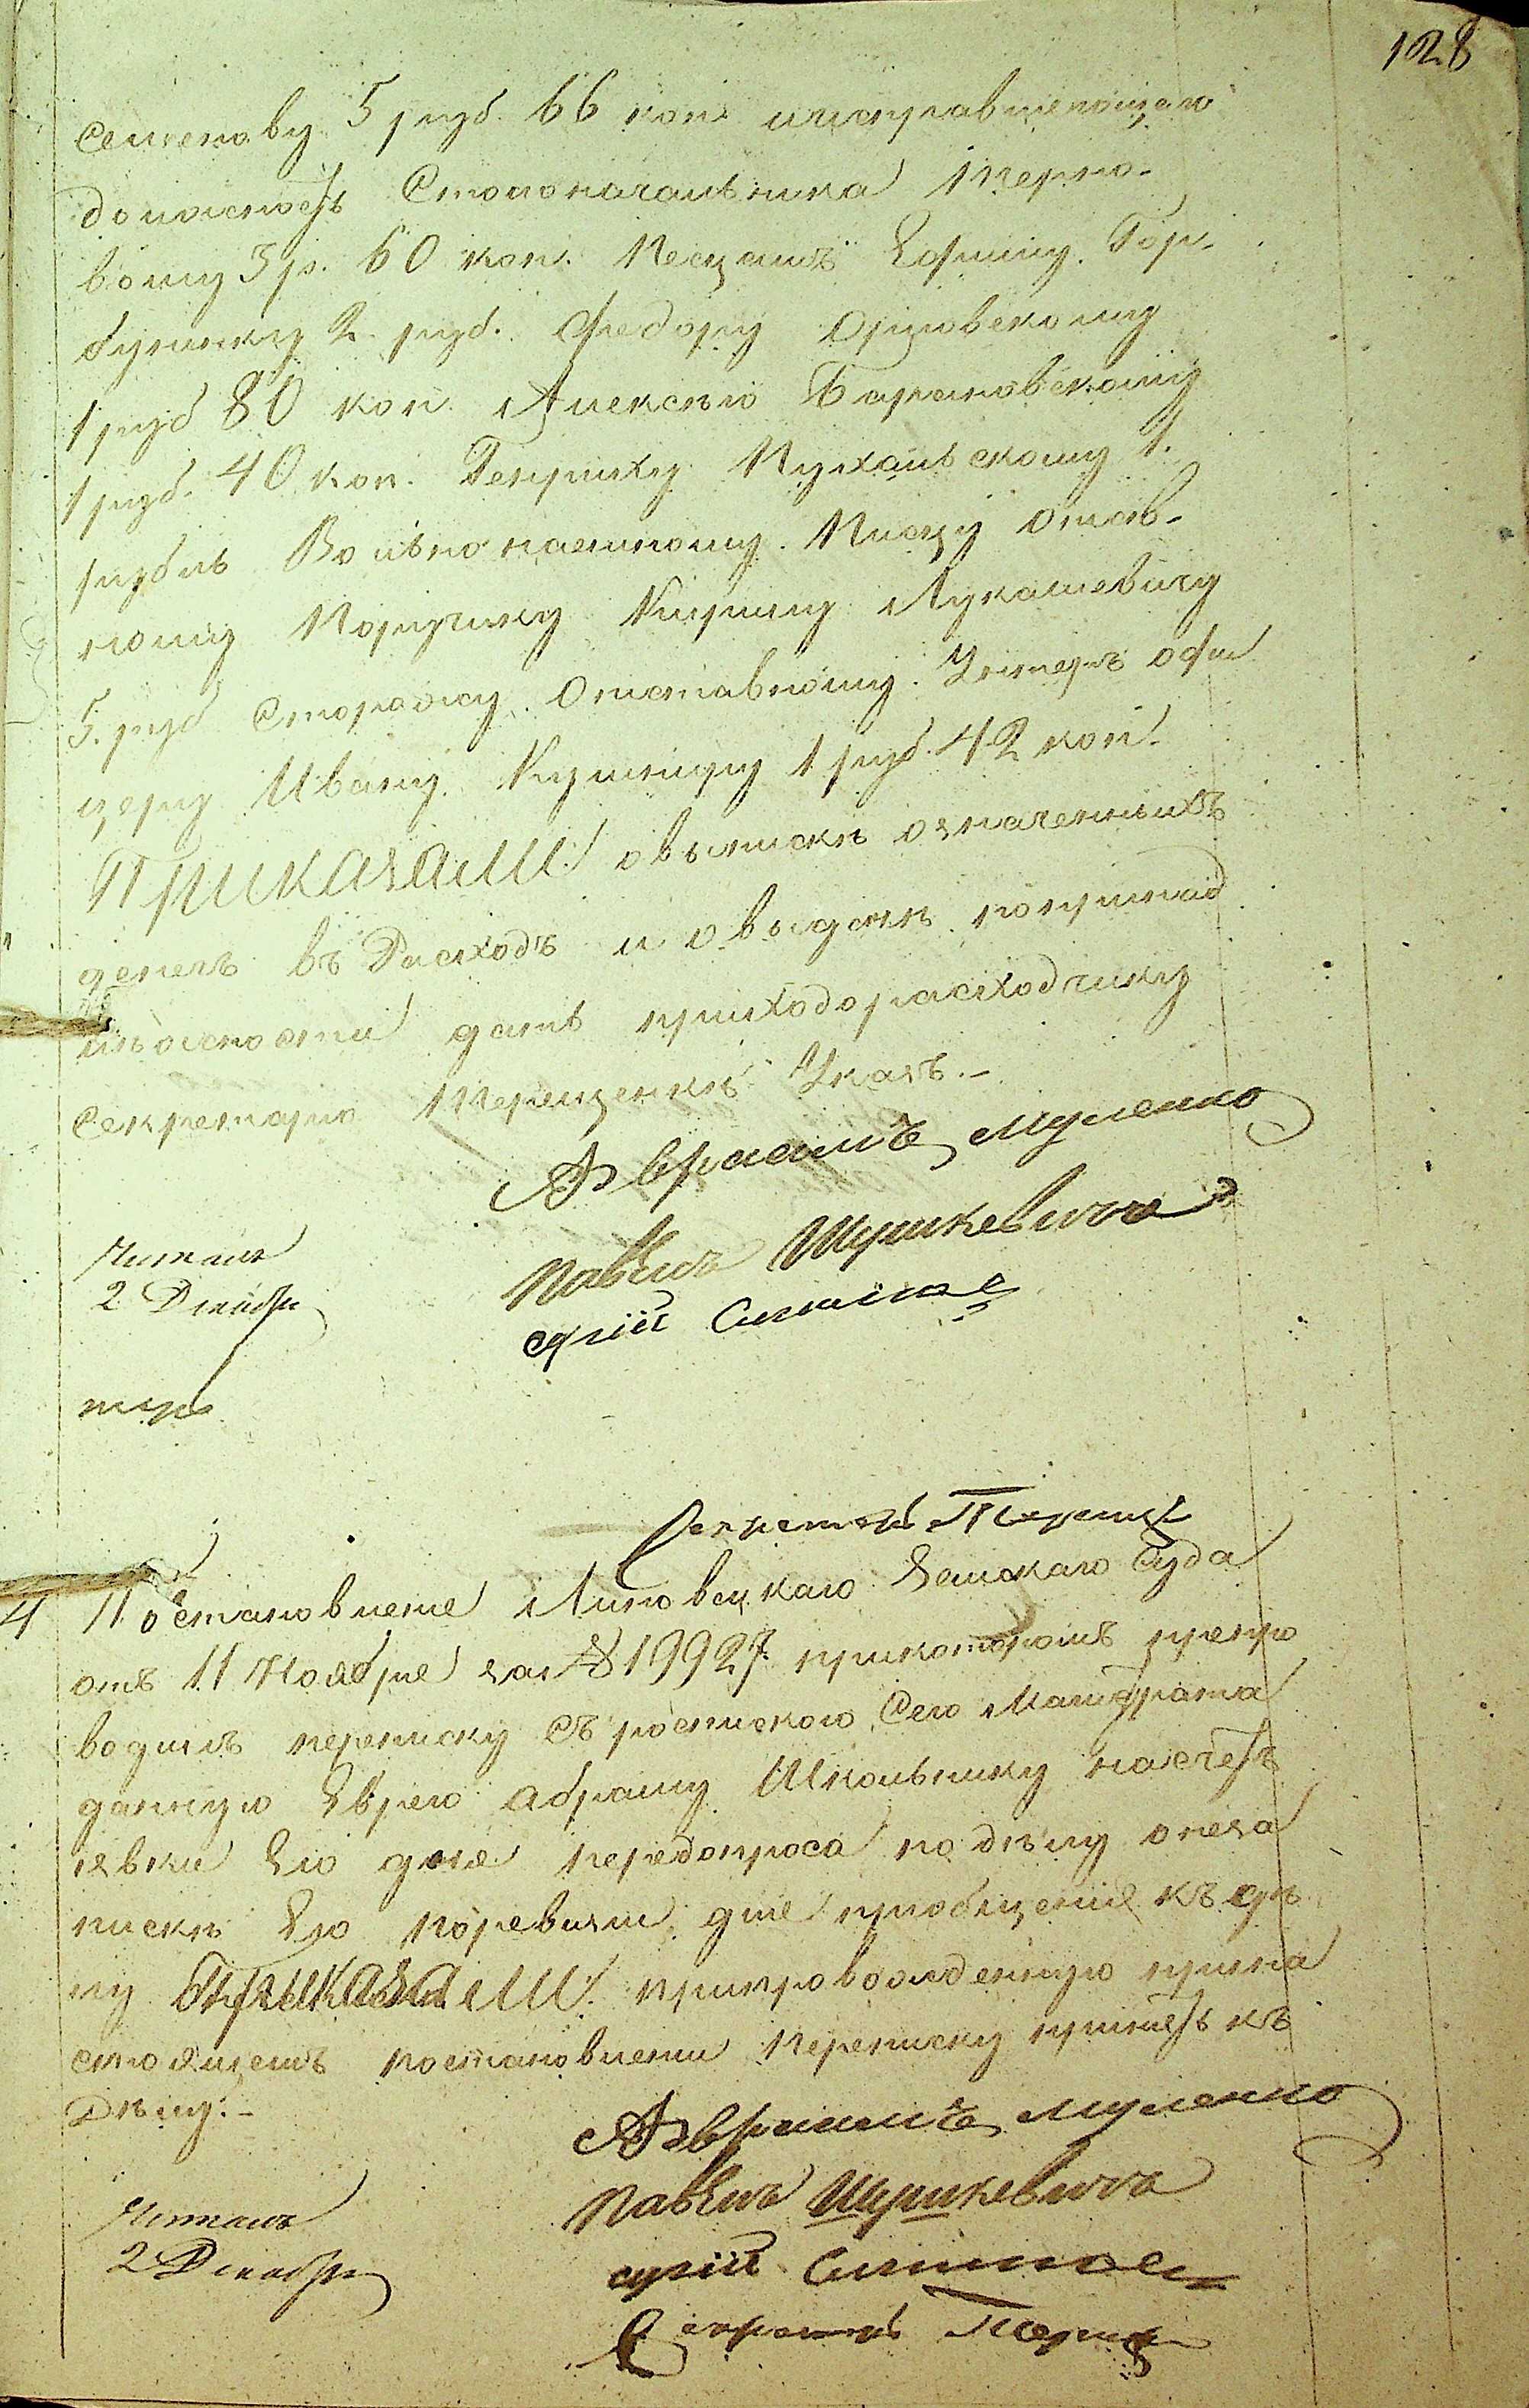 128
Семенову 5 руб. 66 коп. и исправляющаго
должность Столоначальника Терно-
вому 3 р. 60 коп. Писцамъ Ефиму Гор-
булинку 2 руб. Федору Орловскому
1 руб 80 коп. Алексѣю Барановскому
1 руб. 40 коп. Генриху Пухальскому 1.
рубль Вольнонаемному Писцу отстав-
ному Поручику Кирилу Лукашевичу
5. руб Сторожу Отставному Унтеръ офи
церу Ивану Кушниру 1 руб. 42 коп.
Приказали: о выпискѣ означенныхъ
денегъ въ Расходъ и о выдачѣ попринад
лежности дать приходорасходчику
Секретарю Терещенкѣ Указъ.-
Авраамъ Муленко
Читалъ
Павелъ Шушкевичъ
2 Декабря
Секретарь Терещ
4 Постановление Липовецкаго Земскаго Суда
отъ 11 Ноября за № 19927. прикоторомъ препро
водилъ переписку съ роспискою Сего Магистрата
данную Еврею Абраму Школьнику насчетъ
явки Его для передопроса по дѣлу о неза
пискѣ Его поревизии, для приобщения къ дѣ
лу Приказали: припровожденную прина
стоящемъ постановлении переписку приметь къ
Дѣлу.-
Авраамъ Муленко
Павелъ Шушкевичъ
Читалъ
2 Декабря
Секретарь Терещ